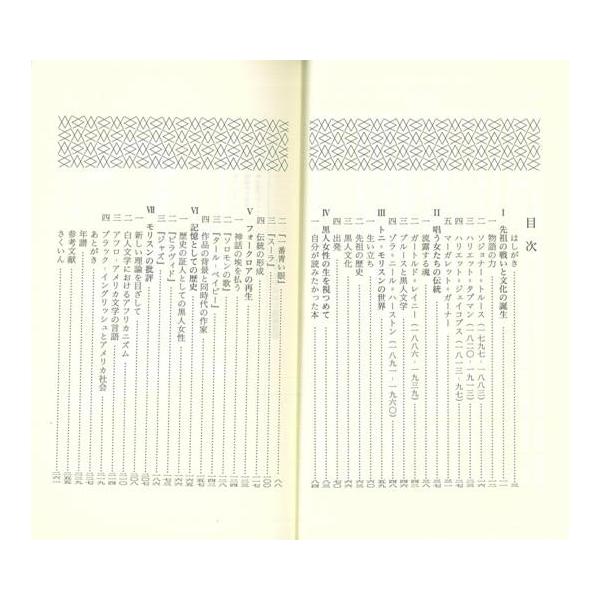 目次
はしがき
I 先祖の戦いと文化の誕生
一 物語の力
二 ソジョナー・トルース(一七九七‐一八八三)
三 ハリエット・タブマン(一八二〇‐一九一三)
四 ハリエット・ジェイコブス(一八一三‐九七)
五 マーガレット・ガーナー
II 唱う女たちの伝統
一 流露する魂
二 ガートルド・レイニー(一八八六‐一九三九)
三 ブルースと黒人文学
四 ゾラ・ニール・ハーストン(一八九一‐一九六〇)
III トニ・モリスンの世界
一 生い立ち
二 先祖の歴史
三 黒人文化
四 出発
IV 黒人女性の生を視つめて
一 自分が読みたかった本
二 『一番青い眼』
三 『スーラ』
四 伝統の形成
V フォークロアの再生
一 神話の埃を払う
二 『ソロモンの歌』
三 『タール・ベイビー』
四 作品の背景と同時代の作家
VI 記憶としての歴史
一 歴史の証人としての黒人女性
二 『ビラヴド』
三 『ジャズ』
VII モリスンの批評
一 新しい理論を目ざして
二 白人文学におけるアフリカニズム
三 アフロ・アメリカ文学の言語
四 ブラック・イングリッシュとアメリカ社会
あとがき
年譜
参考文献
さくいん